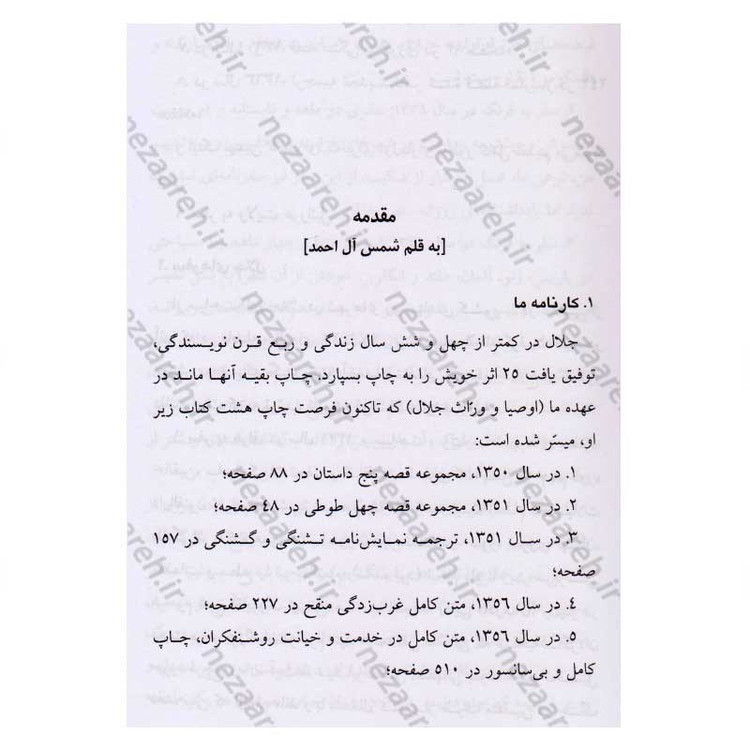 مقدمه
[به قلم شمس آل احمد]
۱. کارنامه ما
جلال در کمتر از چهل و شش سال زندگی و ربع قرن نویسندگی،
توفیق یافت ۲۵ اثر خویش را به چاپ بسپارد. چاپ بقیه آنها ماند در
عهده ما (اوصیا و ورّاث جلال) که تاکنون فرصت چاپ هشت کتاب زیر
او، میسّر شده است:
۱. در سال ۱۳۵۰، مجموعه قصه پنج داستان در ۸۸ صفحه؛
۲. در سال ۱۳۵۱، مجموعه قصه چهل طوطی در ۴۸ صفحه؛
۳. در سال ۱۳۵۱، ترجمه نمایش‌نامه تشنگی و گشنگی در ۱۵۷
صفحه؛
۴. در سال ۱۳۵۶، متن کامل غرب‌زدگی منقح در ۲۲۷ صفحه؛
۵. در سال ۱۳۵۶، متن کامل در خدمت و خیانت روشنفکران، چاپ
کامل و بی‌سانسور در ۵۱۰ صفحه؛
nezaareh.ir